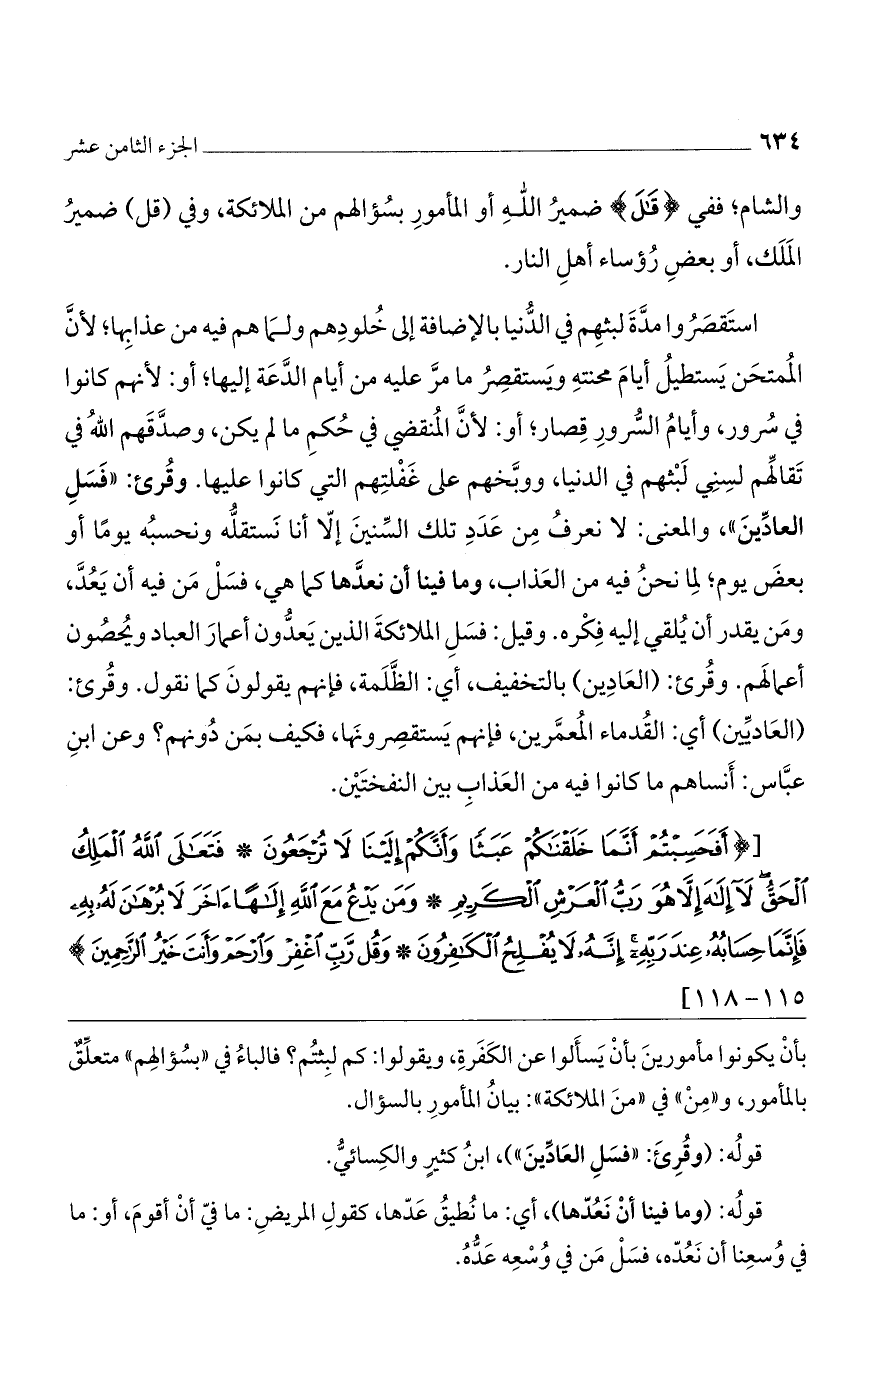 ٦٣٤ الجزء الثامن عشر
والشام؛ ففي ﴿قَالَ﴾ ضميرُ اللهِ أو المأمورِ بسُؤالهم من الملائكة، وفي (قل) ضميرُ
المَلَك، أو بعضِ رُؤساء أهلِ النار.
استَقصَرُوا مدَّةَ لبثِهم في الدُّنيا بالإضافة إلى خُلودِهم ولـمَا هم فيه من عذابِها؛ لأنَّ
المُمتحَن يَستطيلُ أيامَ محنتهِ ويَستقصِرُ ما مرَّ عليه من أيام الدَّعَة إليها؛ أو: لأنهم كانوا
في سُرور، وأيامُ السُّرورِ قِصار؛ أو: لأنَّ المُنقضي في حُكمِ ما لم يكن، وصدَّقَهم اللهُ في
تَقالِّهم لسِنِي لَبْثهم في الدنيا، ووبَّخهم على غَفْلتِهم التي كانوا عليها. وقُرئ: «فَسَلِ
العادِّينَ»، والمعنى: لا نعرفُ مِن عَدَدِ تلك السِّنينَ إلّا أنا نَستقلُّه ونحسبُه يومًا أو
بعضَ يوم؛ لِما نحنُ فيه من العَذاب، وما فينا أن نعدَّها كما هي، فسَلْ مَن فيه أن يَعُدَّ،
ومَن يقدر أن يُلقي إليه فِكْره. وقيل: فسَلِ الملائكةَ الذين يَعدُّون أعمارَ العباد ويُحصُون
أعمالَهم. وقُرئ: (العَادِين) بالتخفيف، أي: الظَّلَمة، فإنهم يقولونَ كما نقول. وقُرئ:
(العَاديِّين) أي: القُدماء المُعمَّرين، فإنهم يَستقصِرونَها، فكيف بمَن دُونهم؟ وعن ابنِ
عبَّاس: أَنساهم ما كانوا فيه من العَذابِ بين النفختَيْن.
[﴿أَفَحَسِبْتُمْ أَنَّمَا خَلَقْنَاكُمْ عَبَثًا وَأَنَّكُمْ إِلَيْنَا لَا تُرْجَعُونَ * فَتَعَالَى اللَّهُ الْمَلِكُ
الْحَقُّ ۖ لَا إِلَٰهَ إِلَّا هُوَ رَبُّ الْعَرْشِ الْكَرِيمِ * وَمَن يَدْعُ مَعَ اللَّهِ إِلَٰهًا ءَاخَرَ لَا بُرْهَانَ لَهُ بِهِ
فَإِنَّمَا حِسَابُهُ عِندَ رَبِّهِ ۚ إِنَّهُ لَا يُفْلِحُ الْكَافِرُونَ * وَقُل رَّبِّ اغْفِرْ وَارْحَمْ وَأَنتَ خَيْرُ الرَّاحِمِينَ﴾
١١٥-١١٨]
بأنْ يكونوا مأمورينَ بأنْ يَسألوا عن الكَفَرةِ، ويقولوا: كم لبِثتُم؟ فالباءُ في «بسُؤالِهم» متعلِّقٌ
بالمأمور، و«مِنْ» في «منَ الملائكة»: بيانُ المأمورِ بالسؤال.
قولُه: (وقُرِئَ: «فسَلِ العَادِّينَ»)، ابنُ كثيرٍ والكِسائيُّ.
قولُه: (وما فينا أنْ نَعُدّها)، أي: ما نُطيقُ عَدّها، كقولِ المريضِ: ما فيّ أنْ أقومَ، أو: ما
في وُسعِنا أن نَعُدّه، فسَلْ مَن في وُسْعِه عَدُّهُ.